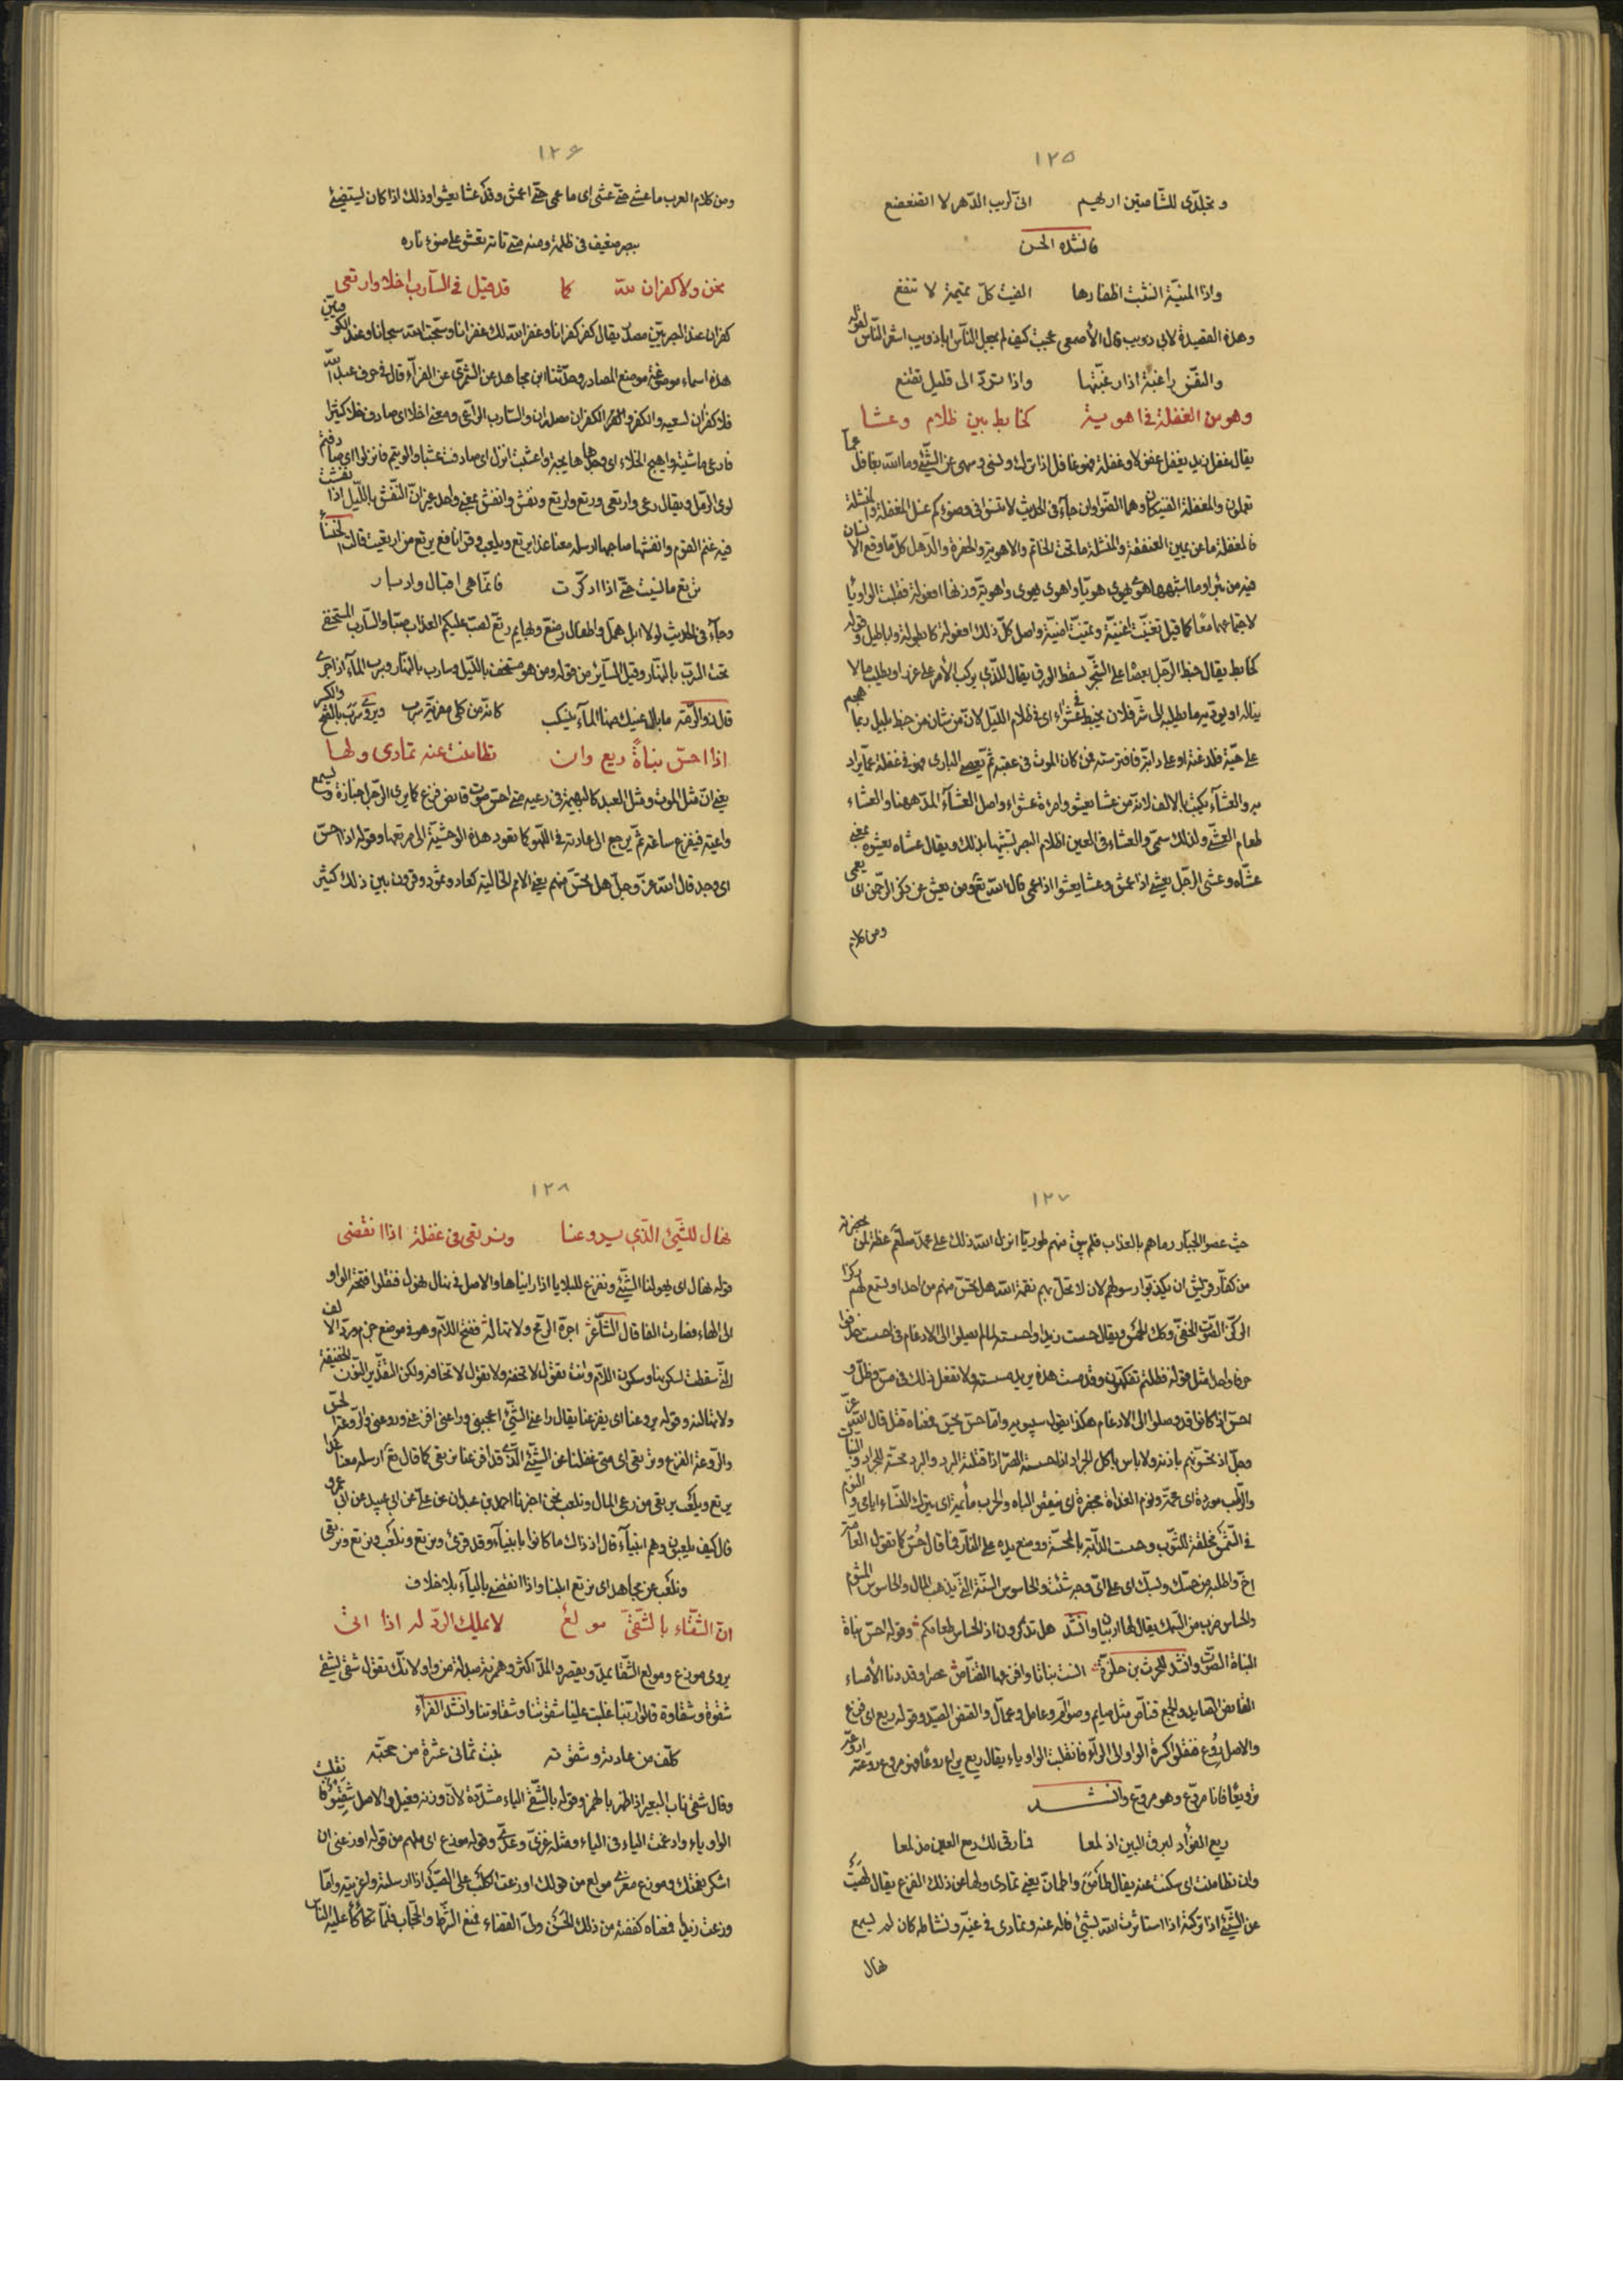 ١٢٥
وتجلّدى للشّامتين اريهم انّى لريب الدّهر لا اتضعضع
فانشده الحسن
واذا المنيّة انشبت اظفارها الفيت كلّ تميمة لا تنفع
وهذه القصيدة لابى ذويب قال الأصمعى عجبت كيف لم يجعل النّاس اباذويب اشعر النّاس لقوله
والنّفس راغبة اذا رغّبتها واذا تردّ الى قليل تقنع
وهو من الغفلة فى اهوية كخابط بين ظلام وعشا
يقال غفل زيد يغفل غفولا وغفلة فهو غافل اذا ترك ونسى وسهى عن الشّئ وما اللّه بغافل عمّا
تعملون والمغفلة العنفقة وهما الصّواران جآء فى الحديث لا تنسوا فى وضوءكم غسل المغفلة والمنشلة
فالمغفلة ما عن يمين العنفقة والمنشلة ما تحت الخاتم والاهوية والحفرة والدّحل كلّ ما وقع الانسان
فيه من بئر او ما اشبهها هوى يهوى هويّا واهوى يهوى واهويّة وزنها افعولة فقلبت الواو يآ
لاجتماعهما معًا كما قيل تغنيّت اغنيّة وتمنيّت امنيّة واصل كلّ ذلك افعولة كابطولة واباطيل وقوله
كخابط يقال خبط الرّجل بعصًا على الشّجر لسقط الورق يقال للذّى يركب الأمر على غرر او يطلب ما لا
يناله او يؤدّيه ما يطلبه الى شرّ فلان يخبط فى عشوآء اى فى ظلام اللّيل لانّ من شان من خبط بليل ربما هجم
على حيّة فلدغته او على دابّة فافترسته فمن كان الموت فى عقبه ثمّ يعصى البارى فهو فى غفلة عمّا يراد
به والعشآء يكتب بالالف لانّه من عشا يعشو وامرءة عشواء واصل العشآء المدّ ههنا والعشاء
طعام العشىّ ولذلك سمّى والعشاء فى العين اظلام البصر تشبيها بذلك ويقال عشاه يعشوه بمعنى
عشّاه وعشى الرّجل يعشى اذا عمش وعشا يعشوا اذا عمى قال اللّه تع ومن يعش عن ذكر الرّحمن اى يعمى
ومن كلام
١٢٦
ومن كلام العرب ما عشى حتّى عشى اى ما عمى حتّى اعمش وقد عشا يعشوا وذلك اذا كان يستضئ
ببصر ضعيف فى ظلمة ومنه متى تاته تعشو على ضوء ناره
نحن ولا كفران للّه كما قد قيل فى السّارب اخلا وارتعى
كفران عند البصريّين مصدر يقال كفر كفرانا وغفر اللّه لك غفرانا وسبّحت اللّه سبحانا وعند الكوفيّين
هذه اسماء موضوعة موضع المصادر وحدّثنا ابن مجاهد عن السّمرّى عن الفرّآء قال فى حرف عبد اللّه
فلا كفران لسعيه والكفر والكفر الكفران مصدران والسّارب الرّاعى ومعنى اخلا اى صادف خلا كثيرا
فيه غنم القوم وانفشها صاحبها ارسله معنا غدا يرتع ويلعب وقرانافع يرتع من ارتعيت قالت الخنساء
ترتع ما نسيت حتّى اذا ادكّرت فانّما هى اقبال وادبار
وجآء فى الحديث لولا ابل همّل واطفال رضّع وبهايم رتّع لصبّ عليكم العذاب صبّا والسّارب المستخفى
تحت السّرب بالنّهار وقيل السّاير من قوله ومن هو مستخف باللّيل وسارب بالنّهار وسرب المآء اذا جرى
قال ذو الرّمّة ما بال عينيك منها المآء ينسكب كانّه من كلى مفريّة سرب ويروى سرَب بالفتح والكسر
اذا احسّ نباةً ريع وان تطامنت عنه تمادى ولها
يعنى انّ مثل الموت ومثل العبد كالبهيمة فى رعيه متى احسّ صوت قانص فزع كما يرى الرّجل جنازة ويسمع
واعية فيفزع ساعة ثمّ يرجع الى عادته فى اللّهو كما تعود هذه الوحشيّة الى مرتعها وقوله اذا احسّ
اى وجد قال اللّه عزّ وجلّ هل تحسّ منهم يعنى الامم الخالية كعاد وثمود وقرون بين ذلك كثير
١٢٧
حيث عصوا الجبّار رماهم بالعذاب فلم يبق منهم طوريّا انزل اللّه ذلك على محمّد صلّعم عظة لمن بحضرته
من كفّار قريش ان يكذبّوا رسولهم لان لا تحلّ بهم نقمة اللّه هل تحسّ منهم من احد او تسمع لهم ركزا
حرفا واحدا مثل قوله فظلتم تفكّهون وقد مست هذه يريد مسسته ولا تفعل ذلك فى مسّ وظلّ و
احسّ اذ كانوا قد وصلوا الى الادغام هكذا يقول سيبويه وامّا حسّ يحسّ فمعناه قتل قال اللّه عزّ
وجلّ اذ تحسّونهم باذنه ولا باس باكل الجراد اذا حسّه الضرّ اذا قتلته البرد والبرد محسّة للجراد والنّبات
فى الشّمس مخلقة للثّوب وحست الدّابّة بالمحسّة ووضع يده على النّار فما قال حُسّ كما تقول العامّة
والحساس ضرب من السّمك يقال لها اربيان وانشد هل تذكرون اذ الحساس طعامكم وقوله احسّ نباة
النباة الصّوت وانشد للحرث بن حلزّة آنست نباتا وافزعها القنّاص عصرا وقد دنا الأمساء
القانص الصّايد والجمع قنّاص مثل صايم وصوّام وعامل وعمّال والقنص الصّيد وقوله ريع اى فزع
والاصل رُوِع فنقلوا كسرة الواو الى الرّآء فانقلبت الواو ياء يقال ريع يراع روعًا فهو مروع وروّعته اروّعه
ترويعًا فانا مروّع وهو مروّع وانشد
ريع الفؤاد لبرق البين اذ لمعا فارقى لك دمع العين مذ لمعا
وان تطامنت اى سكنت عنه يقال طأمَنَ واطمانّ يعنى تمادى ولها عن ذلك الفزع يقال لَهَيتُ
عن الشّئ اذا تركته اذا استاثرت اللّه بشئ فاله عنه وتمادى فى غيّه ونشاطه كان لم يسمع
نهال
١٢٨
نهال للشّيئ الّذى يروعنا ونرتعى فى غفلة اذا انقضى
قوله نهال اى يهولنا الشّئ ونفزع للبلايا اذا رايناها والاصل فى نهال نهول فنقلوا فتحة الواو
الى الهاء فصارت الفا قال الشّاعر اجرّه الرّمح ولا تهاله ففتح اللاّم وهو فى موضع جزم وردّ الالف
الّتى سقطت لسكونها وسكون اللاّم وانت تقول لا تخفه ولا تقول لا تخافه ولكن التقدير النّون الخفيفة
ولا تهالنه وقوله يروعنا اى يفزعنا يقال راعنى الشّئ اعجبنى وراعنى افزعنى وروعنى والرّوعة
والرّوعة الفزع ونرتعى اى متى غفلنا عن الشّئ الّذى قد افزعنا نرتعى كما قال تع ارسله معنا غدا
يرتع ويلعب يرتعى من رعى المال ونلعب نحن اخبرنا احمد بن عبدان عن علىّ عن ابى عبيد عن ابى عمرو
قال كيف يلعبون وهم انبيآء قال اذ ذاك ما كانوا بانبيآء وقد قرئ ونرتع ونلعب ونرتع ونرتعى
ونلعب عن مجاهد اى نرتع ابلنا واذا انقضى باليآء بلا خلاف
انّ الشّقاء بالشّقىّ مولع لا يملك الرّدّ له اذا اتى
يروى موزع ومولع الشّقا يمدّ ويقصر والمدّ اكثر وهمزته مبدلة من واو لانّك تقول شقى يشقى
شقوة وشقاوة قالوا ربّنا غلبت علينا شقوتنا وشقاوتنا وانشد الفرّآء
كلّف من عنائه وشقوته بنت ثمانى عشرة من حجّته
وقال شقئ ناب البعير اذا طلع بالهمز وقوله بالشّقىّ الياء مشدّدة لانّ وزنه فعيل والاصل شَقِيوٌ فانقلبت
الواو ياء وادغمت الياء فى الياء ومثله غنىّ وعدىّ وقوله موزع اى ملهم من قوله اوزعنى ان
اشكر نعمتك وموزع مغرى مولع من قولك اوزعت الكلب على الصّيد اذا ارسلته واغريته وامّا
وزعت زيدا فمعناه كففته من ذلك الحسن ولىّ القضاء فمنع الشّرط والحجّاب فلمّا تكاكأ عليه النّاس